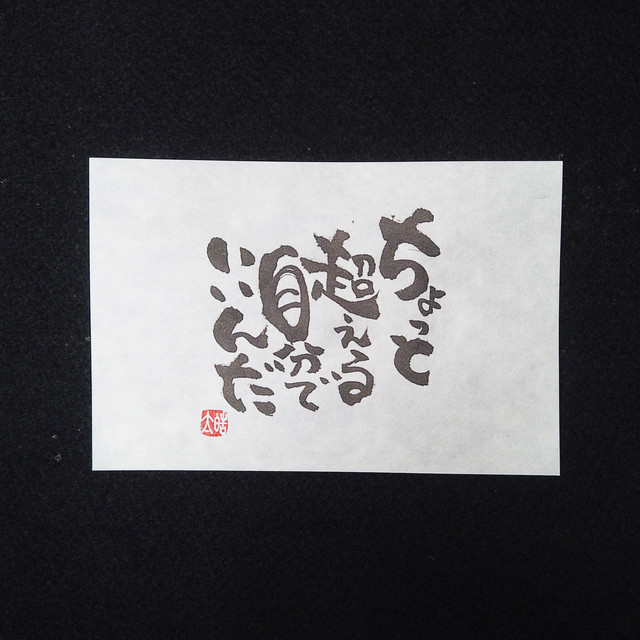 ちょっと
超える
自分で
いいんだ